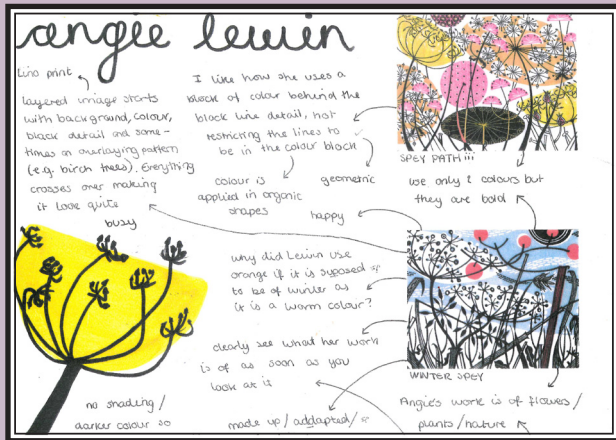 angie lewin
Lino print
layered image starts
with background, colour,
black detail and some-
times an overlaying pattern
(e.g. birch trees). Everything
crosses over making
it look quite
busy
I like how she uses a
block of colour behind the
black line detail, not
restricting the lines to
be in the colour block
colour is
applied in organic
shapes
geometric
happy
SPEY PATH iii
use only 2 colours but
they are bold
why did Lewin use
orange if it is suposed sp
to be of winter as
it is a warm colour?
clearly see what her work
is of as soon as you
look at it
WINTER SPEY
no shading/
darker colour so
made up/addapted/
Angie's work is of flowers/
plants/nature